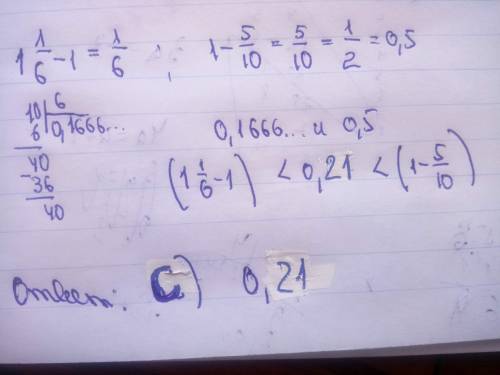 1 1/6 - 1 = 1/6 ; 1 - 5/10 = 5/10 = 1/2 = 0,5
10 | 6
6 0,1666...
40
-36
40
0,1666... и 0,5
(1 1/6 - 1) < 0,21 < (1 - 5/10)
Ответ: C) 0,21